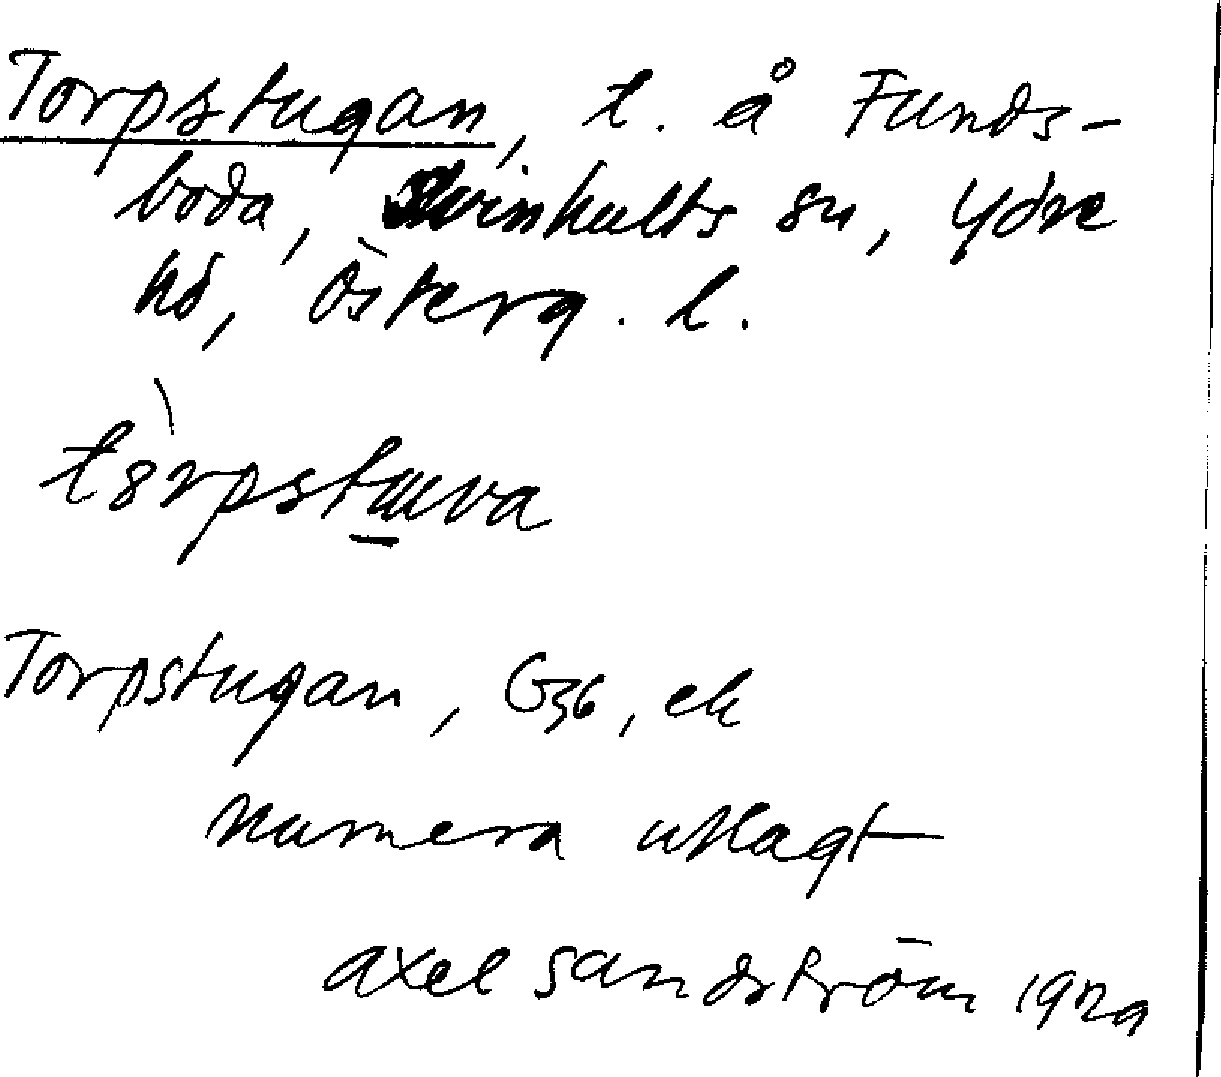 Torpstugan, t. å Funds-
boda, Svinhults sn, Ydre
hd, Österg. l.
Torpstugan, G36, ek
numera utlagt
Axel Sandström 1929